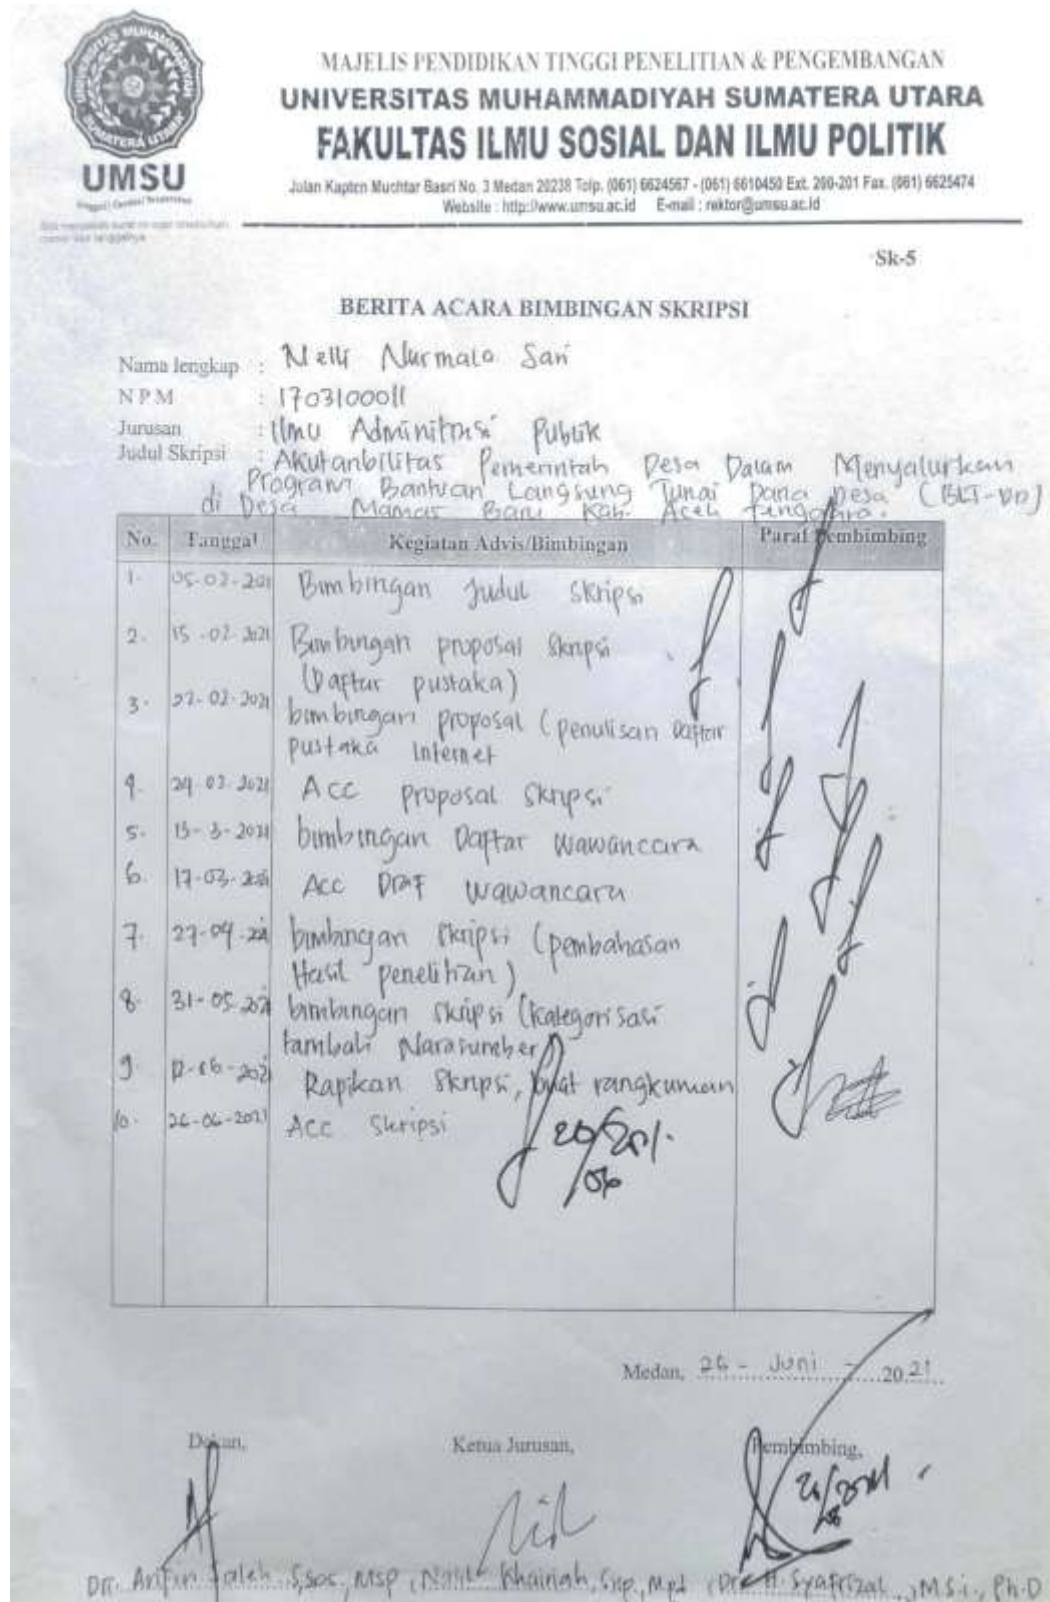 MAJELIS PENDIDIKAN TINGGI PENELITIAN & PENGEMBANGAN
UNIVERSITAS MUHAMMADIYAH SUMATERA UTARA
FAKULTAS ILMU SOSIAL DAN ILMU POLITIK
UMSU
Jalan Kapten Muchtar Basri No. 3 Medan 20238 Telp. (061) 6624567 - (061) 6610450 Ext. 200-201 Fax. (061) 6625474
Website : http://www.umsu.ac.id E-mail : rektor@umsu.ac.id
Sk-5
BERITA ACARA BIMBINGAN SKRIPSI
Nama lengkap : Nelli Nurmala Sari
NPM : 1703100011
Jurusan : Ilmu Adminitrasi Publik
Judul Skripsi : Akutanbilitas Pemerintah Desa Dalam Menyalurkan
Program Bantuan Langsung Tunai Dana Desa (BLT-DD)
di Desa Mamas Baru Kab. Aceh Tenggara.
No. Tanggal Kegiatan Advis/Bimbingan Paraf Pembimbing
1. Bimbingan Judul Skripsi
2. 15-02-2021 Bimbingan proposal Skripsi
(Daftar pustaka)
3. 22-02-2021 bimbingan proposal (penulisan Daftar
pustaka internet
4. Acc proposal Skripsi
5. 15-3-2021 bimbingan Daftar wawancara
6. 17-03-2021 Acc Draf wawancara
7. 27-04-2021 bimbingan Skripsi (pembahasan
Hasil penelitian)
8. 31-05-2021 bimbingan Skripsi (Kategorisasi
tambah Narasumber
9. 12-06-2021 Rapikan Skripsi, buat rangkuman
10. 26-06-2021 Acc Skripsi
Medan, 26 - Juni - 2021
Dekan, Ketua Jurusan, Pembimbing,
Dr. Arifin Saleh, S.sos, MSP Khairiah, Sip, Mpd (Drs. H. Syafrizal, M.Si., Ph.D